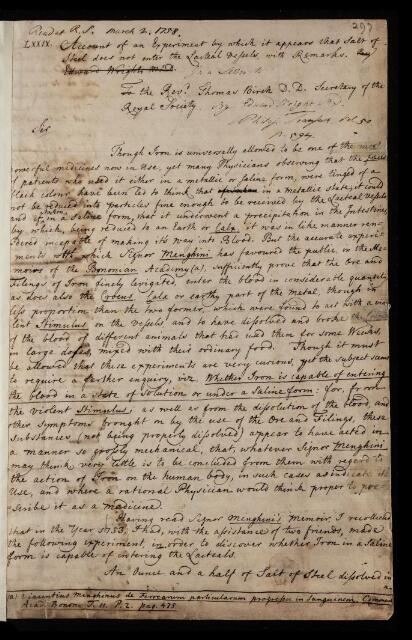 Read at R.S. March 2. 1758.
297
LXXIX. Account of an Experiment by which it appears that Salt of
Steel does not enter the Lacteal Vessels, with Remarks. By
Edward Wright, M.D. In a Letter to
To the Revd. Thomas Birch D.D. Secretary of the
Royal Society. By Edward Wright M.D.
Philos. Transact. Vol. 50
p. 594.
Sir
Though Iron is universally allowed to be one of the most
powerful medicines now in Use, yet many Physicians observing that the faeces
of patients who used it either in a metallic or saline form, were tinged of a
black color, have been led to think that in a metallic state it could
not be reduced into particles fine enough to be received by the Lacteal Vessels
and if given in a Saline form, that it underwent a precipitation in the Intestines,
by which, being reduced to an Earth or Calx, it was in like manner ren-
dered incapable of making its way into Blood. But the accurate experi-
ments which Signor Menghini has favoured the public in the Me-
moirs of the Bononian Academy (a), sufficiently prove that the Ore and
Filings of Iron finely levigated, enter the blood in considerable quantity,
as does also the Croceus Calx or earthy part of the metal, though in
less proportion than the two former, which were found to act with a vio-
lent Stimulus on the Vessels, and to have dissolved and broke the
of the blood of different animals that had used them for some Weeks
in large doses, mixed with their ordinary food. Though it must
be allowed that these experiments are very curious, yet the subject seems
to require a farther enquiry, viz. Whether Iron is capable of entering
the blood in a State of Solution or under a Saline form: for, from
the violent Stimulus, as well as from the dissolution of the blood, and
other Symptoms brought on by the use of the Ore and Filings, these
Substances (not being properly dissolved) appear to have acted in
a manner so grossly mechanical, that, whatever Signor Menghini
may think, very little is to be concluded from them with regard to
the action of Iron on the human body, in such cases as indicate its
Use, and where a rational Physician would think proper to pre-
scribe it as a medicine.
Having read Signor Menghini's Memoir, I recollected
that in the Year 1753, I had, with the assistance of two friends, made
the following experiment, in order to discover whether Iron in a Saline
form is capable of entering the Lacteals.
An Ounce and a half of Salt of Steel dissolved in
(a) Vincentius Menghinus de Ferrearum particularum progressu in Sanguinem. Comment.
Acad. Bonon. T. II. P. 2. pag. 475.